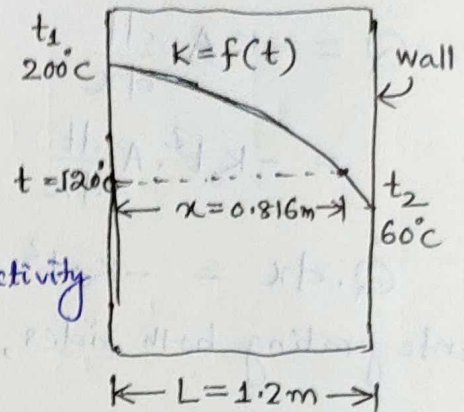 t₁
200°C
K=f(t)
wall
t = 120°C
x = 0.816m
t₂
60°C
ctivity
L = 1.2m